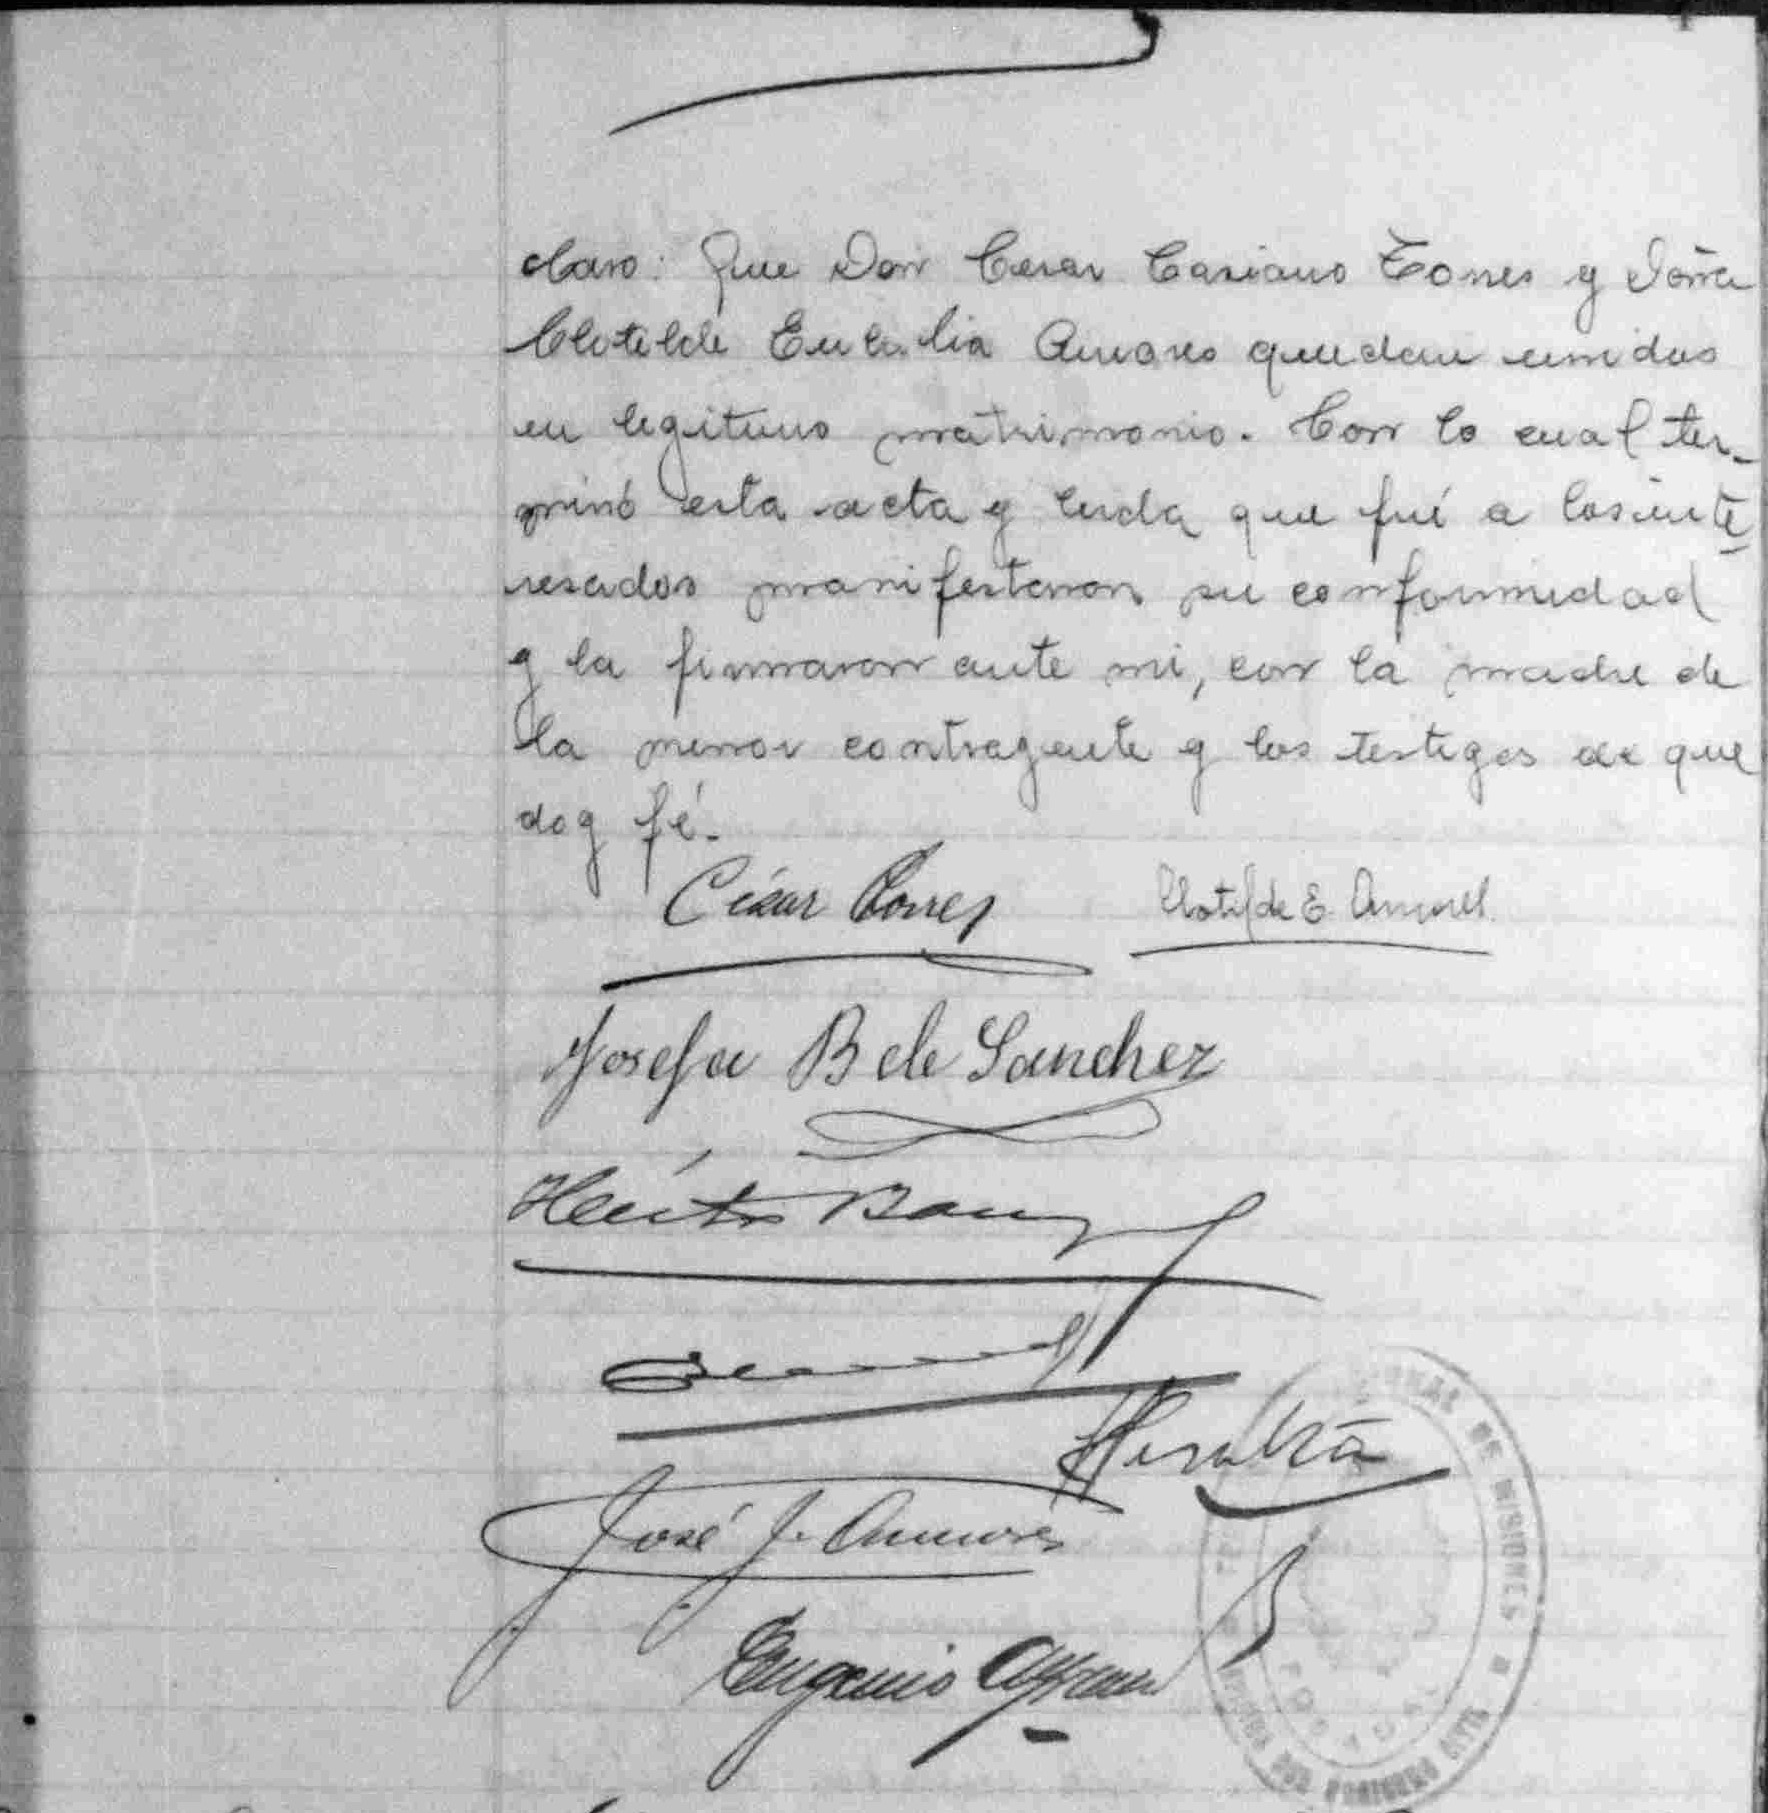 claro: Que Don Cesar Casiano Torres y Doña
Clotilde Eulalia Amores quedan unidos
en legitimo matrimonio. Con lo cual ter-
minó esta acta y leida que fué a los inte
resados manifestaron su conformidad
y la firmaron ante mi, con la madre de
la menor contrayente y los testigos de que
doy fé.
César Torres
Clotilde E. Amores
Josefa B de Sanchez
Héctor
José J. Amores
Eugenio
DE MISIONES
REGISTRO CIVIL
POSADAS